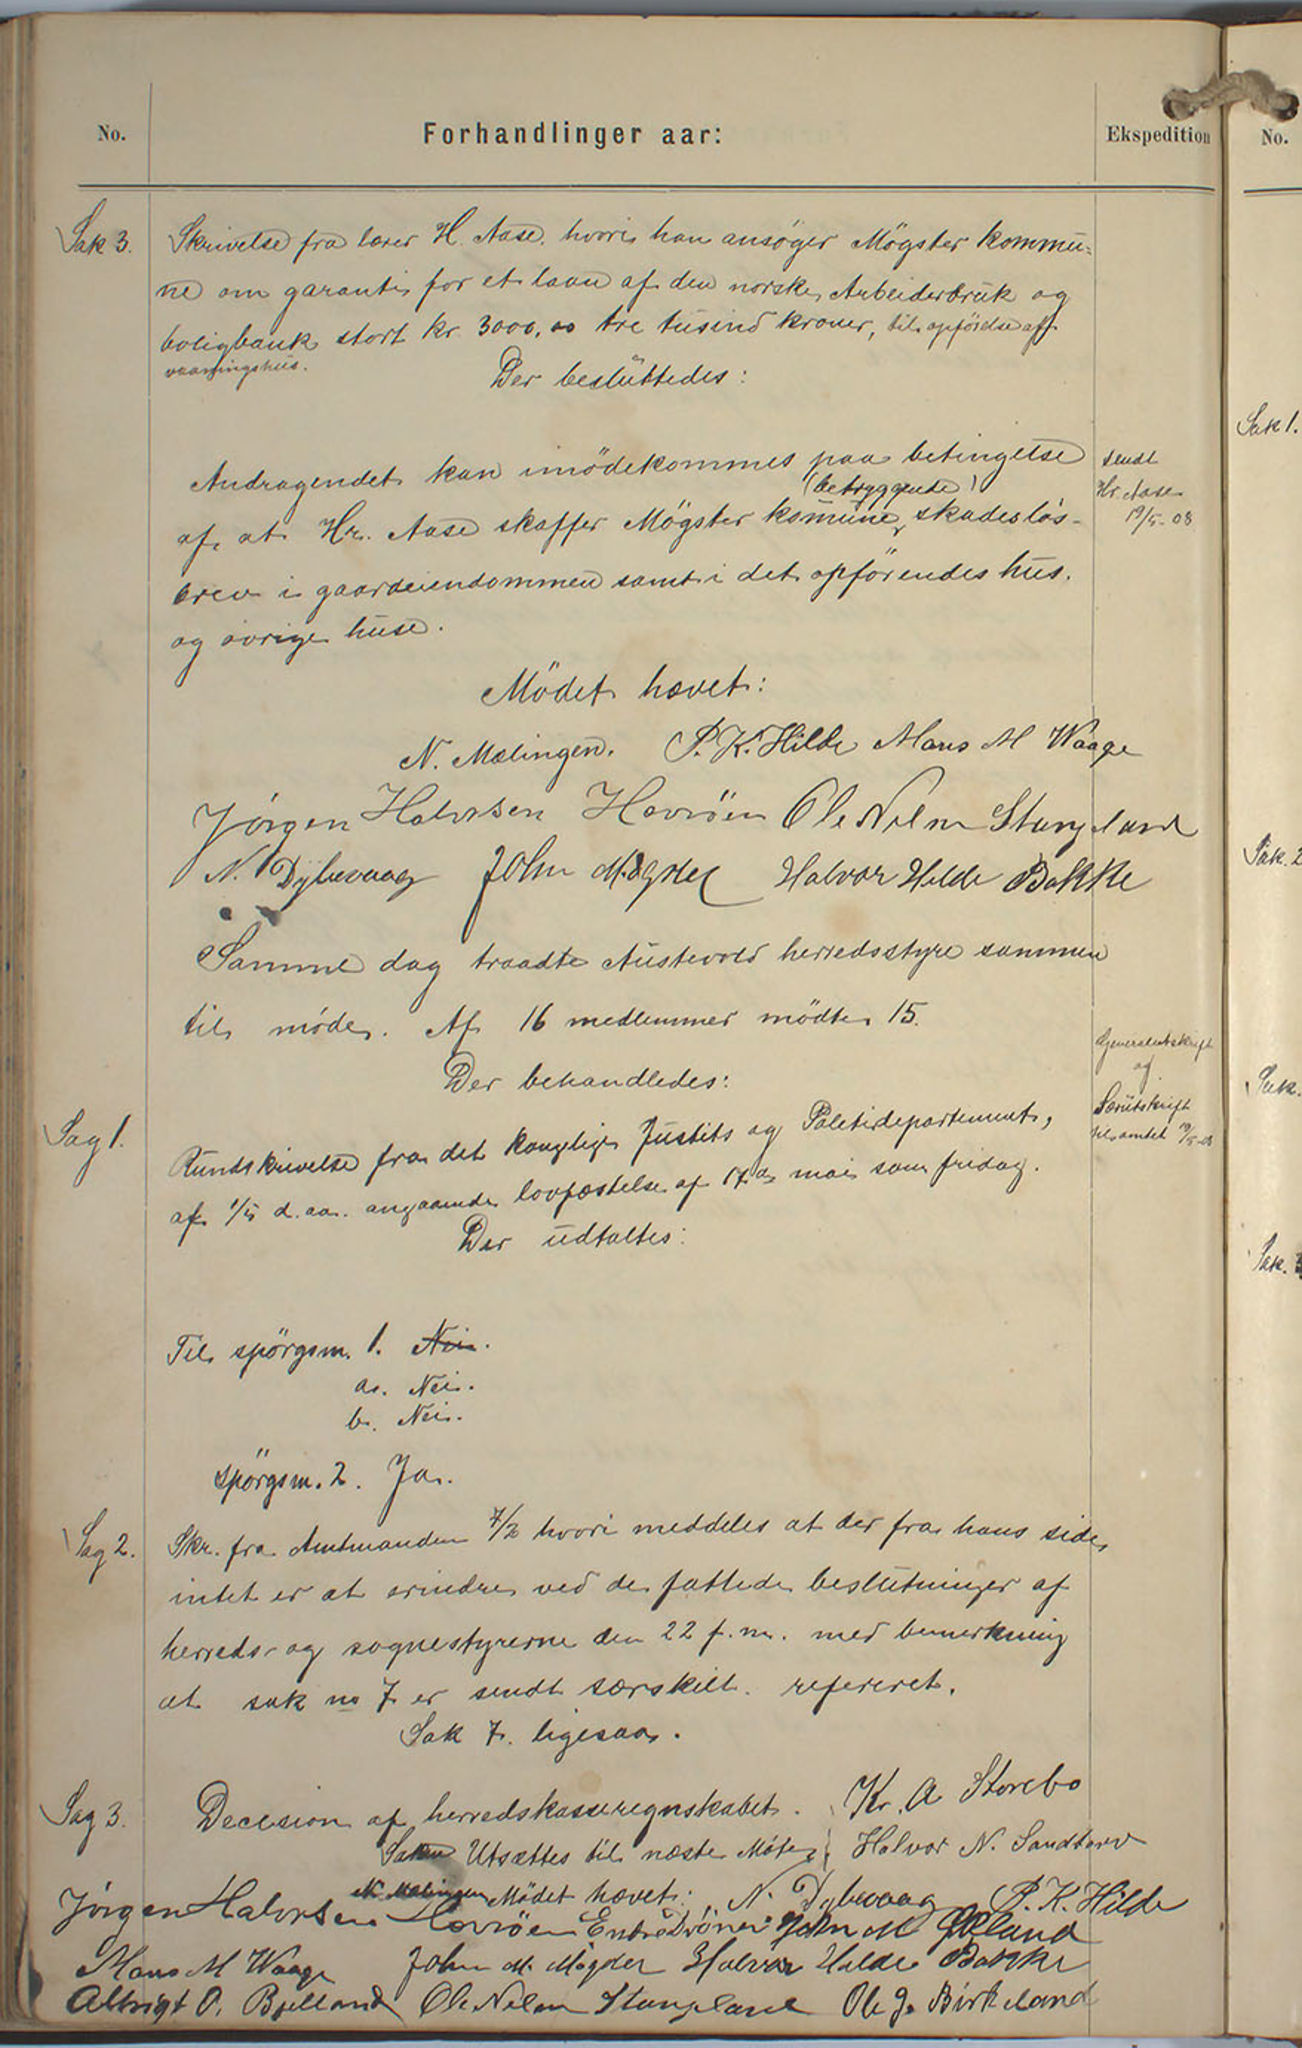 No.
Forhandlinger aar:
Ekspedition
No.
Sak 3.
Skrivelse fra lærer H. Aase, hvori han ansøger Møgster kommu-
ne om garanti for et laan af den norske Arbeiderbruk og
boligbank stort kr 3000,00 tre tusind kroner, til opförelse af
vaaningshus.
Der besluttedes:
Andragendet kan imödekommes paa betingelse
(betryggende)
af, at Hr. Aase skaffer Møgster komune skadesløs-
brev i gaardeiendommen samt i det opförendes hus.
og øvrige huse.
sendt
Hr. Aase
19/5-08
Mödet hævet:
N. Mælingen. P. K. Hilde Mons M Waage
Jörgen Halvorsen Hevröen Ole Nilsen Stangeland
N. Dybevaag John M. Møgster Halvor Hilde Bakke
Samme dag traadte Austevold herredsstyre sammen
til møde. Af 16 medlemmer mödte 15.
Der behandledes:
Generalutskrift
og
Særutskrift
til amtet 19/5-08
Sag 1.
Rundskrivelse fra det kongelige Justits og Politidepartement,
af 1/5 d. aa. angaaende lovfæstelse af 17de mai som fridag.
Der udtaltes:
Til spörgsm. 1. Nei.
a. Nei.
b. Nei.
spörgsm. 2. Ja.
Sag 2.
Skr. fra Amtmanden 7/2 hvori meddeles at der fra hans side
intet er at erindre ved de fattede beslutninger af
herreds- og sognestyrerne den 22 f. m. med bemerkning
at sak no 7 er sendt særskilt. refereret.
Sak 7. ligesaa.
Sag 3.
Decision af herredskasseregnskabet. Kr. A Storebø
Saken Utsættes til næste Møte. Halvor N. Sandtorv
N. Mælingen Mödet hævet: N. Dybevaag P. K. Hilde
Jörgen Halvorsen Hevröen Endre Drönen John M
Mons M Waage John M. Møgster Halvor Hilde Bakke
Albrigt O. Bjelland Ole Nilsen Stangeland Ole J. Birkeland
Sak 1.
Sak. 2
Sak.
Sak.